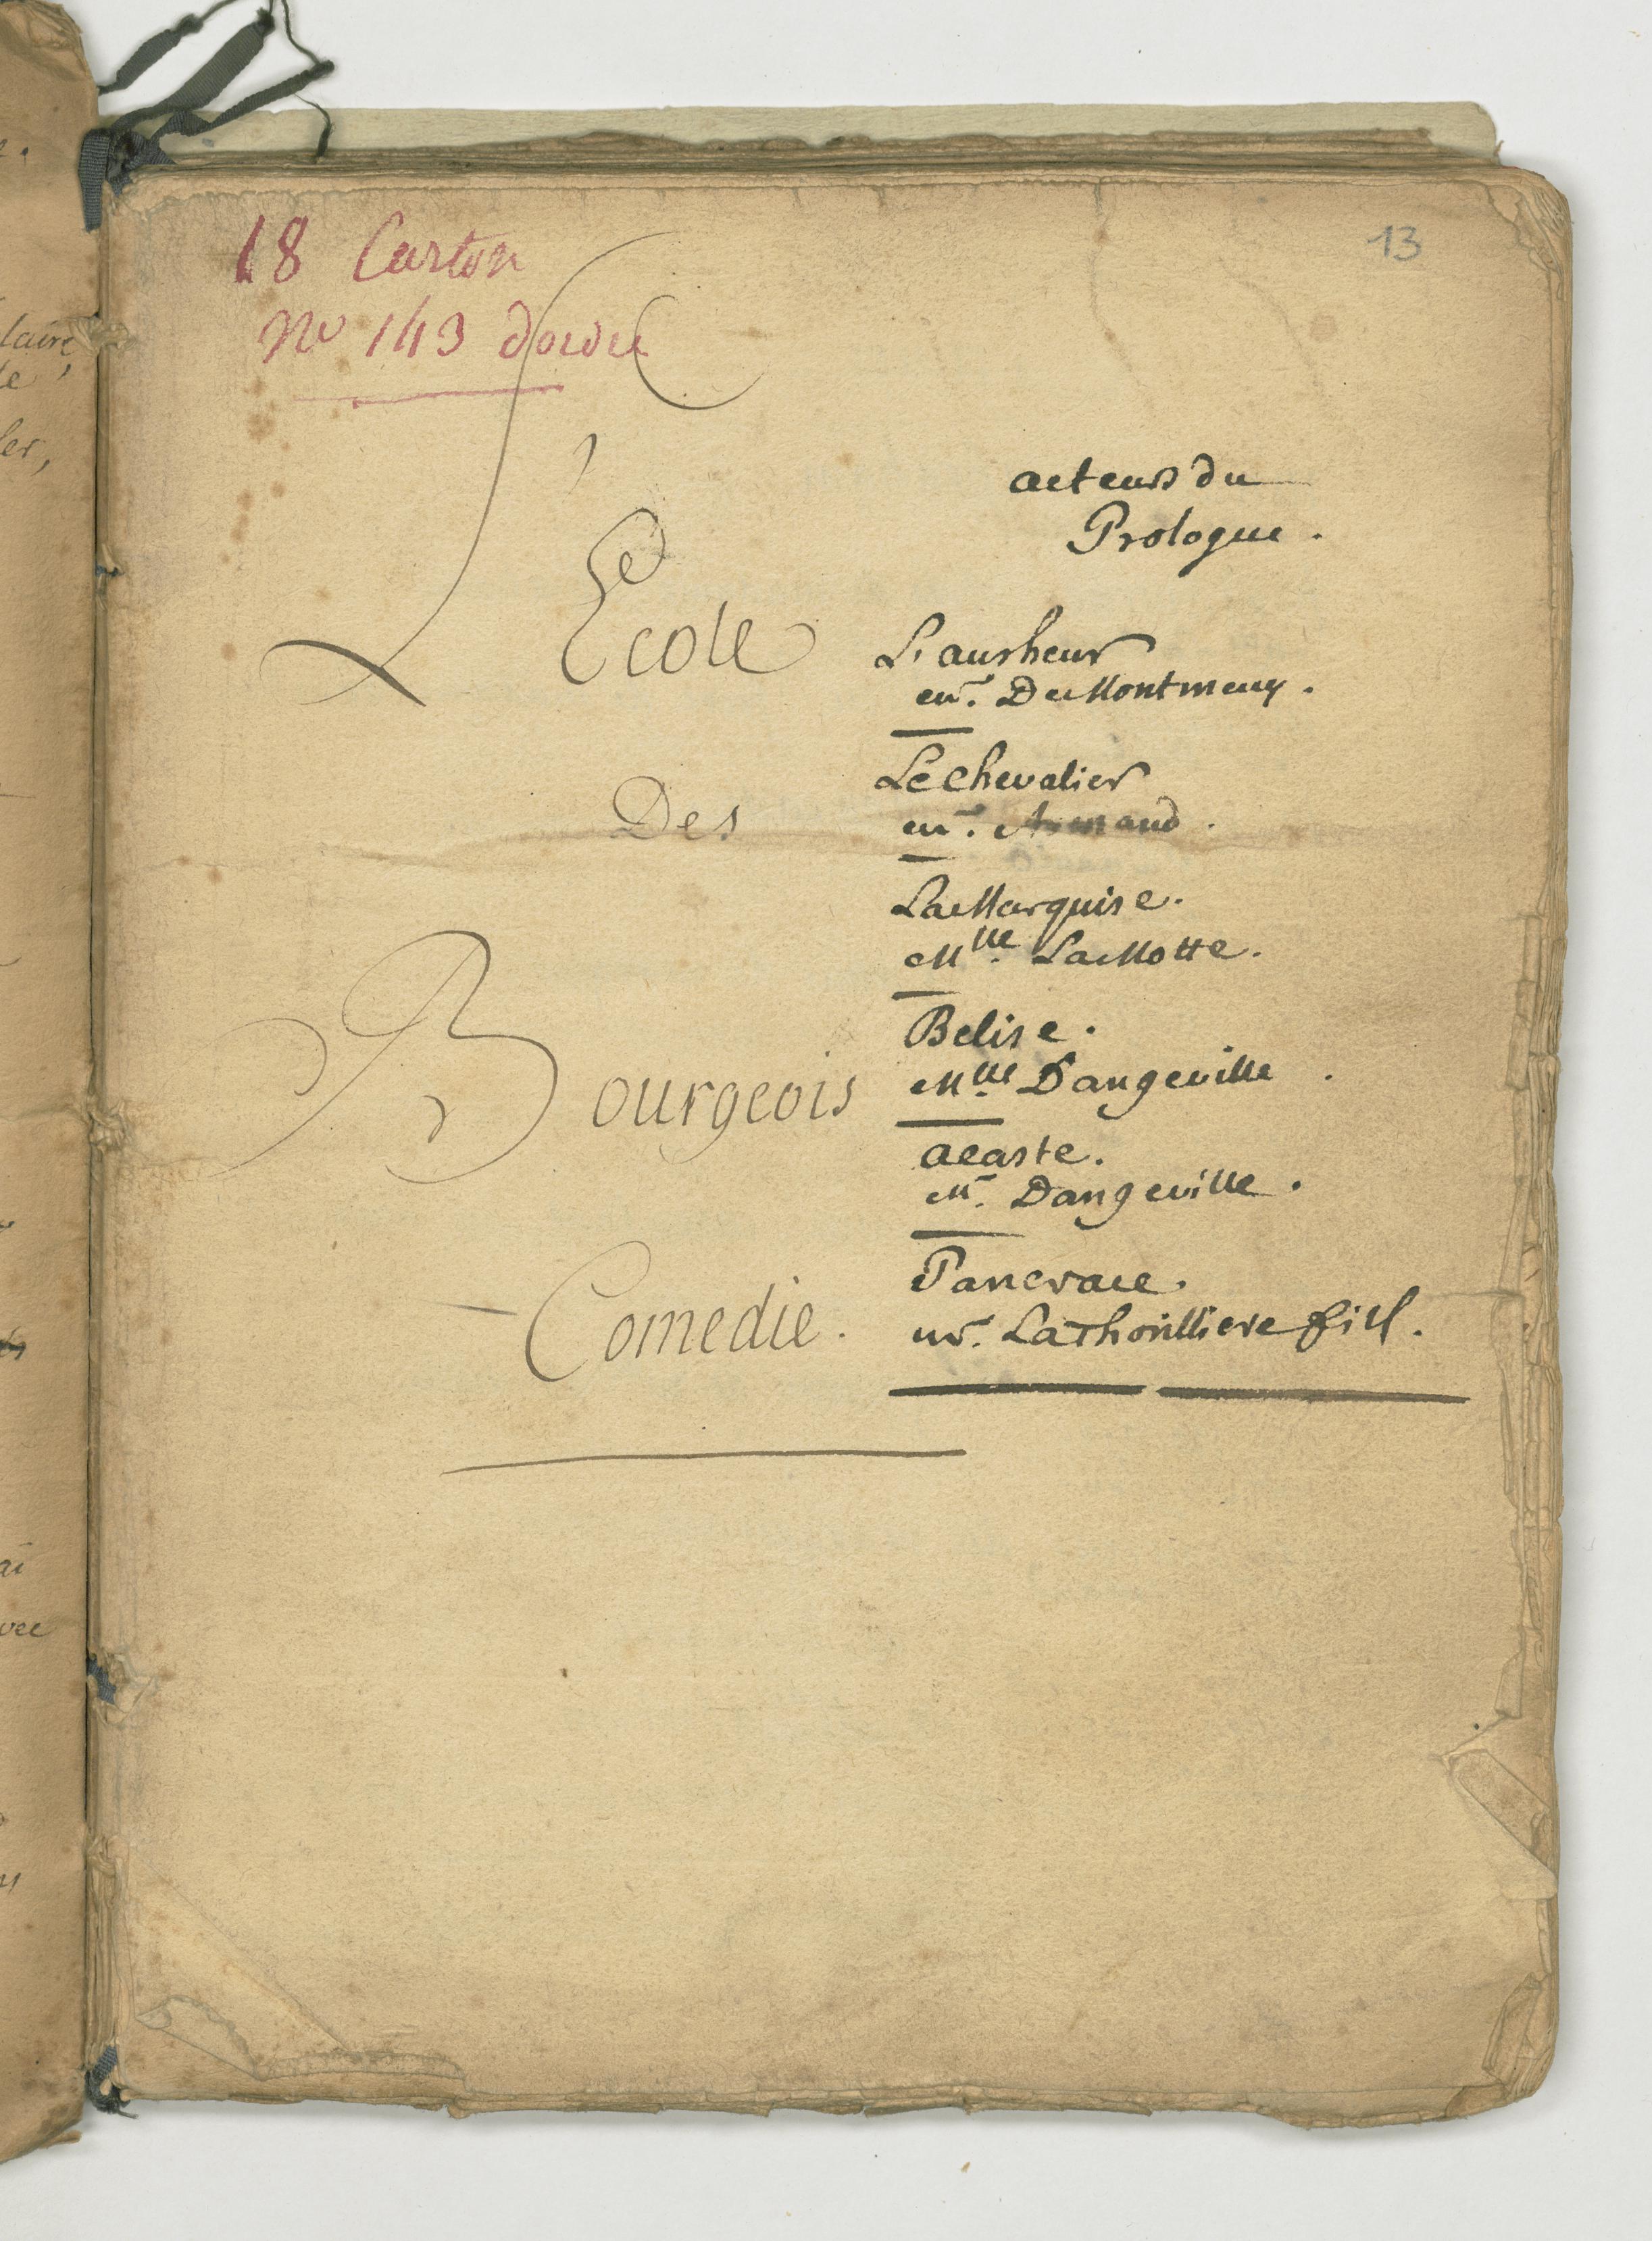 18 Carton
No 143 dordre
13
L'
Ecole
Des
Bourgeois
Comedie.
acteurs du
Prologue.
L'autheur
mr. De Montmeny.
Le chevalier
mr. Armand.
La Marquise.
Mlle. La Motte.
Belise.
Mlle. Dangeville.
acaste.
Mr. Dangeville.
Pancrace.
mr. La Thorilliere fils.
laire,
te
ler,
ai
vec